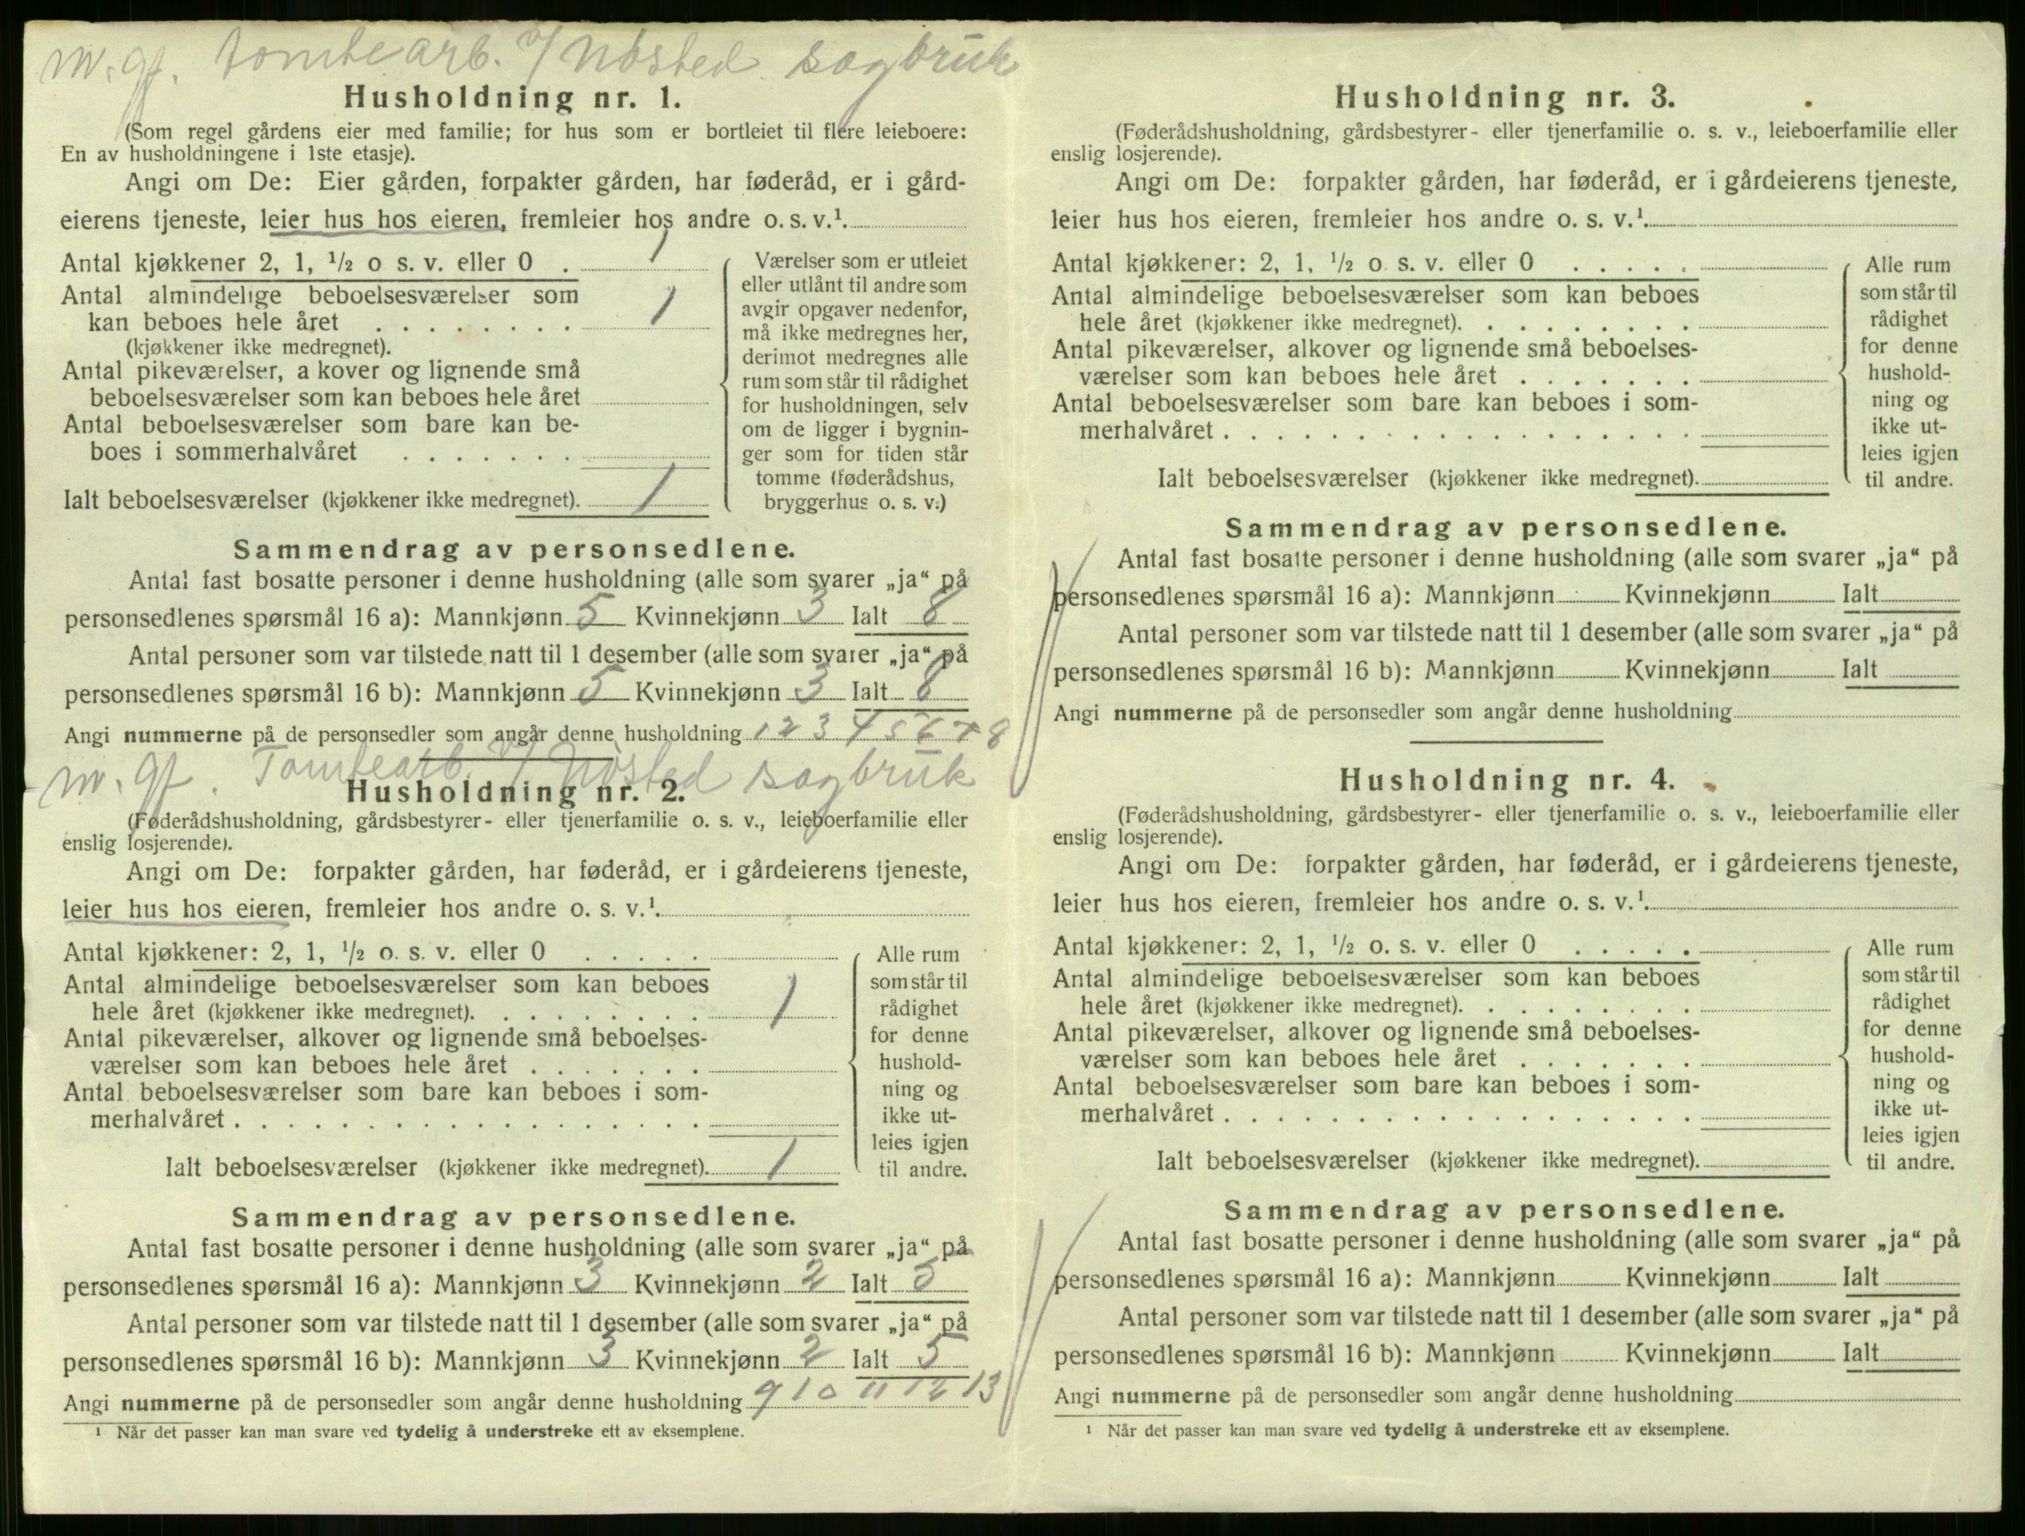 m. gf. tomtearb. v/ Nøsted sagbruk
Husholdning nr. 1.
(Som regel gårdens eier med familie; for hus som er bortleiet til flere leieboere:
En av husholdningene i 1ste etasje).
Angi om De: Eier gården, forpakter gården, har føderåd, er i gård-
eierens tjeneste, leier hus hos eieren, fremleier hos andre o. s. v.¹.
Antal kjøkkener 2, 1, ½ o s. v. eller 0 . 1
Antal almindelige beboelsesværelser som
kan beboes hele året . . . . . . . . 1
(kjøkkener ikke medregnet).
Antal pikeværelser, a kover og lignende små
beboelsesværelser som kan beboes hele året
Antal beboelsesværelser som bare kan be-
boes i sommerhalvåret . . . . . . .
Ialt beboelsesværelser (kjøkkener ikke medregnet). 1
Værelser som er utleiet
eller utlånt til andre som
avgir opgaver nedenfor,
må ikke medregnes her,
derimot medregnes alle
rum som står til rådighet
for husholdningen, selv
om de ligger i bygnin-
ger som for tiden står
tomme (føderådshus,
bryggerhus o. s. v.)
Sammendrag av personsedlene.
Antal fast bosatte personer i denne husholdning (alle som svarer „ja“ på
personsedlenes spørsmål 16 a): Mannkjønn 5 Kvinnekjønn 3 Ialt 8
Antal personer som var tilstede natt til 1 desember (alle som svarer „ja“ på
personsedlenes spørsmål 16 b): Mannkjønn 5 Kvinnekjønn 3 Ialt 8
Angi nummerne på de personsedler som angår denne husholdning 1 2 3 4 5 6 7 8
m. gf. Tomtearb. v/ Nøsted sagbruk
Husholdning nr. 2.
(Føderådshusholdning, gårdsbestyrer- eller tjenerfamilie o. s. v., leieboerfamilie eller
enslig losjerende).
Angi om De: forpakter gården, har føderåd, er i gårdeierens tjeneste,
leier hus hos eieren, fremleier hos andre o. s. v.¹.
Antal kjøkkener: 2, 1, ½ o. s. v. eller 0 . . . . .
Antal almindelige beboelsesværelser som kan beboes
hele året (kjøkkener ikke medregnet). . . . . . . . . 1
Antal pikeværelser, alkover og lignende små beboelses-
værelser som kan beboes hele året . . . . . . .
Antal beboelsesværelser som bare kan beboes i som-
merhalvåret . . . . . . . . . . . . . . . . . .
Ialt beboelsesværelser (kjøkkener ikke medregnet). 1
Alle rum
som står til
rådighet
for denne
hushold-
ning og
ikke ut-
leies igjen
til andre.
Sammendrag av personsedlene.
Antal fast bosatte personer i denne husholdning (alle som svarer „ja“ på
personsedlenes spørsmål 16 a): Mannkjønn 3 Kvinnekjønn 2 Ialt 5
Antal personer som var tilstede natt til 1 desember (alle som svarer „ja“ på
personsedlenes spørsmål 16 b): Mannkjønn 3 Kvinnekjønn 2 Ialt 5
Angi nummerne på de personsedler som angår denne husholdning 9 10 11 12 13
¹ Når det passer kan man svare ved tydelig å understreke ett av eksemplene.
Husholdning nr. 3.
(Føderådshusholdning, gårdsbestyrer- eller tjenerfamilie o. s. v., leieboerfamilie eller
enslig losjerende).
Angi om De: forpakter gården, har føderåd, er i gårdeierens tjeneste,
leier hus hos eieren, fremleier hos andre o. s. v.¹.
Antal kjøkkener: 2, 1, ½ o. s. v. eller 0 . . . . .
Antal almindelige beboelsesværelser som kan beboes
hele året (kjøkkener ikke medregnet). . . . . . . . .
Antal pikeværelser, alkover og lignende små beboelses-
værelser som kan beboes hele året . . . . . . .
Antal beboelsesværelser som bare kan beboes i som-
merhalvåret . . . . . . . . . . . . . . . . . .
Ialt beboelsesværelser (kjøkkener ikke medregnet).
Alle rum
som står til
rådighet
for denne
hushold-
ning og
ikke ut-
leies igjen
til andre.
Sammendrag av personsedlene.
Antal fast bosatte personer i denne husholdning (alle som svarer „ja“ på
personsedlenes spørsmål 16 a): Mannkjønn Kvinnekjønn Ialt
Antal personer som var tilstede natt til 1 desember (alle som svarer „ja“ på
personsedlenes spørsmål 16 b): Mannkjønn Kvinnekjønn Ialt
Angi nummerne på de personsedler som angår denne husholdning
Husholdning nr. 4.
(Føderådshusholdning, gårdsbestyrer- eller tjenerfamilie o. s. v., leieboerfamilie eller
enslig losjerende).
Angi om De: forpakter gården, har føderåd, er i gårdeierens tjeneste,
leier hus hos eieren, fremleier hos andre o. s. v.¹.
Antal kjøkkener: 2, 1, ½ o. s. v. eller 0 . . . . .
Antal almindelige beboelsesværelser som kan beboes
hele året (kjøkkener ikke medregnet). . . . . . . . .
Antal pikeværelser, alkover og lignende små beboelses-
værelser som kan beboes hele året . . . . . . .
Antal beboelsesværelser som bare kan beboes i som-
merhalvåret . . . . . . . . . . . . . . . . . .
Ialt beboelsesværelser (kjøkkener ikke medregnet).
Alle rum
som står til
rådighet
for denne
hushold-
ning og
ikke ut-
leies igjen
til andre.
Sammendrag av personsedlene.
Antal fast bosatte personer i denne husholdning (alle som svarer „ja“ på
personsedlenes spørsmål 16 a): Mannkjønn Kvinnekjønn Ialt
Antal personer som var tilstede natt til 1 desember (alle som svarer „ja“ på
personsedlenes spørsmål 16 b): Mannkjønn Kvinnekjønn Ialt
Angi nummerne på de personsedler som angår denne husholdning
¹ Når det passer kan man svare ved tydelig å understreke ett av eksemplene.